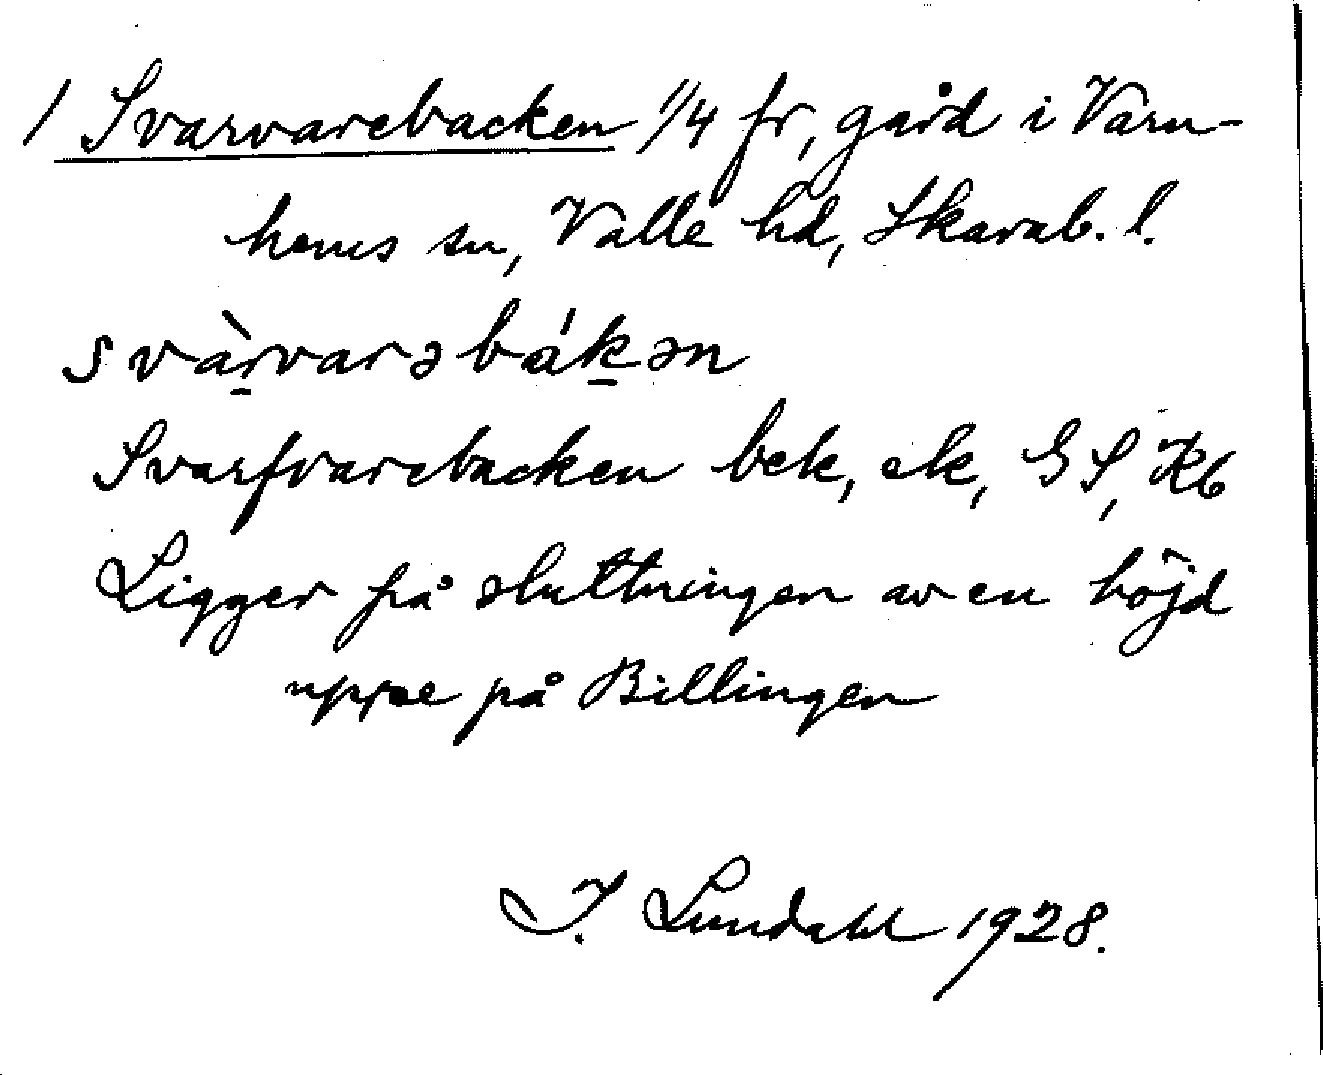 1 Svarvarebacken 1/4 fr, gård i Varn-
hems sn, Valle hd, Skarab. l.
svàr̲varəbák̲ən
Svarfvarebacken bek, ek, GS, Kb
Ligger på sluttningen av en höjd
uppe på Billingen
I. Lundahl 1928.